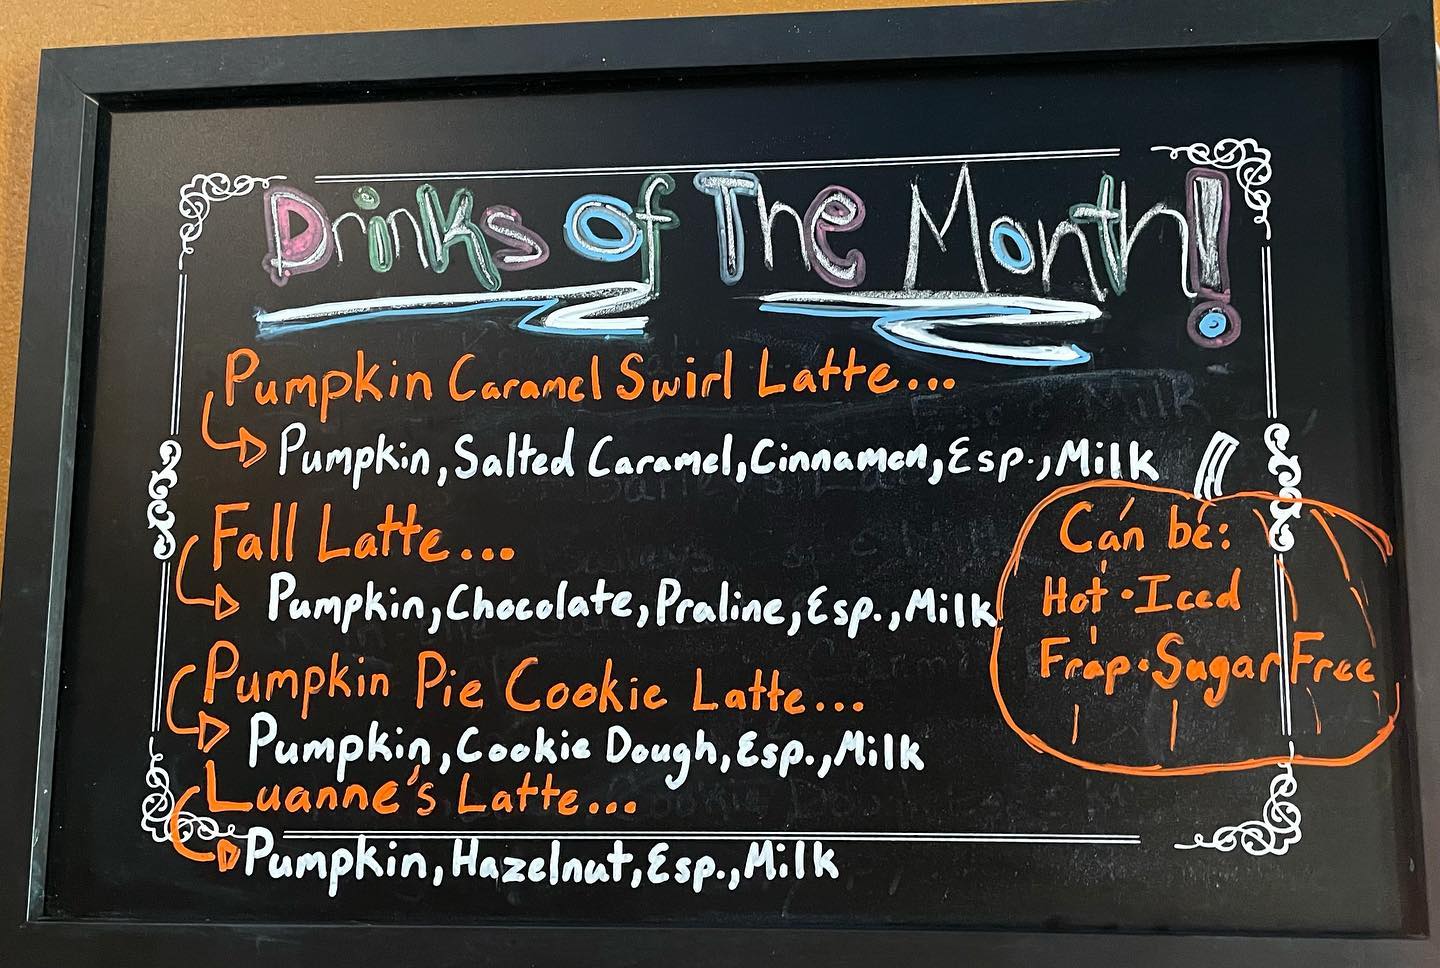 Drinks Of The Month!
Pumpkin Caramel Swirl Latte...
Pumpkin, Salted Caramel, Cinnamon, Esp., Milk
Fall Latte...
Pumpkin, Chocolate, Praline, Esp., Milk
Pumpkin Pie Cookie Latte...
Pumpkin, Cookie Dough, Esp., Milk
Luanne's Latte...
Pumpkin, Hazelnut, Esp., Milk
Can be:
Hot · Iced
Frap · Sugar Free